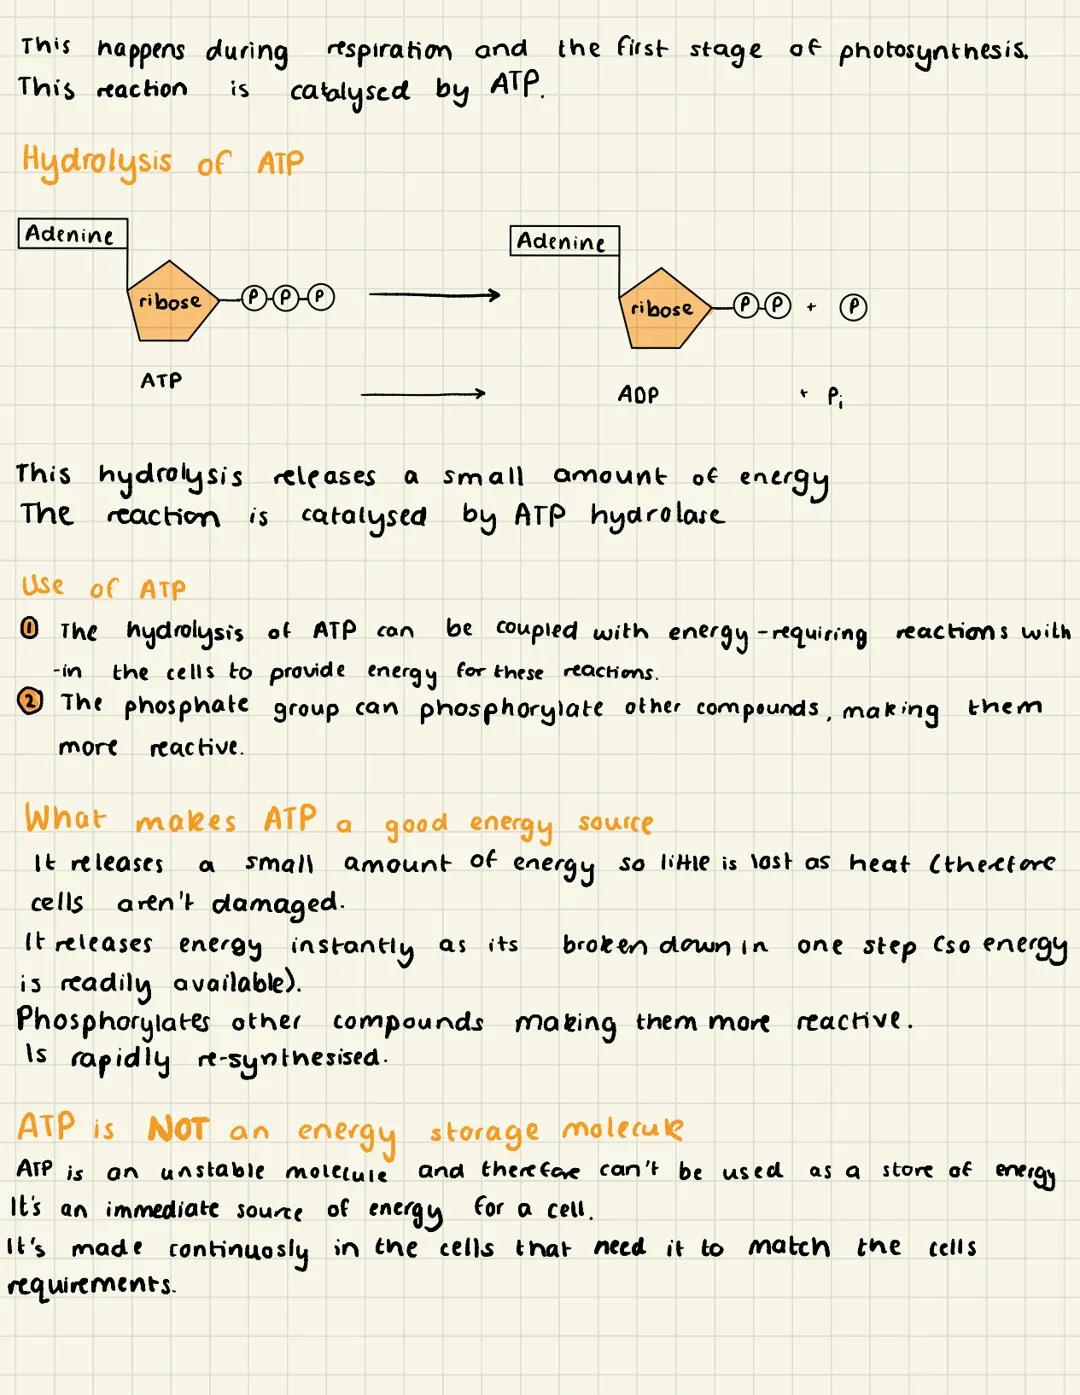 This happens during respiration and the first stage of photosynthesis.
This reaction is catalysed by ATP.
Hydrolysis of ATP
Adenine
ribose P P P
ATP
Adenine
ribose P P + P
ADP + Pi
This hydrolysis releases a small amount of energy
The reaction is catalysed by ATP hydrolase
Use of ATP
① The hydrolysis of ATP can be coupled with energy-requiring reactions with
-in the cells to provide energy for these reactions.
② The phosphate group can phosphorylate other compounds, making them
more reactive.
What makes ATP a good energy source
It releases a small amount of energy so little is lost as heat (therefore
cells aren't damaged.
It releases energy instantly as its broken down in one step (so energy
is readily available).
Phosphorylates other compounds making them more reactive.
Is rapidly re-synthesised.
ATP is NOT an energy storage molecule
ATP is an unstable molecule and therefore can't be used as a store of energy
It's an immediate source of energy for a cell.
It's made continuosly in the cells that need it to match the cells
requirements.